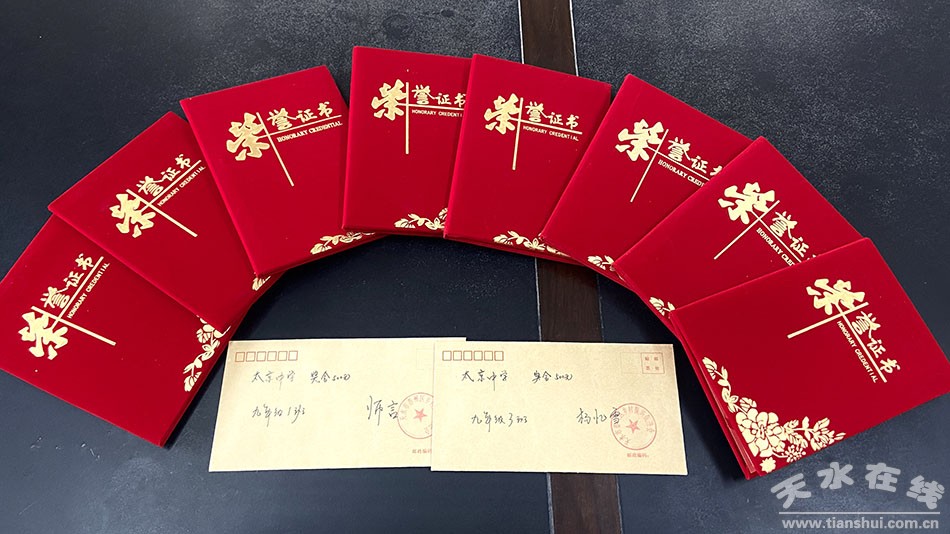 荣誉证书
HONORARY CREDENTIAL
荣誉证书
HONORARY CREDENTIAL
荣誉证书
HONORARY CREDENTIAL
荣誉证书
HONORARY CREDENTIAL
荣誉证书
HONORARY CREDENTIAL
荣誉证书
HONORARY CREDENTIAL
荣誉证书
HONORARY CREDENTIAL
荣誉证书
HONORARY CREDENTIAL
太京中学 奖金500元
九年级1班 师言
邮政编码:
贴邮
票处
太京中学 奖金500元
九年级3班 杨忆雪
邮政编码:
天水在线
www.tianshui.com.cn